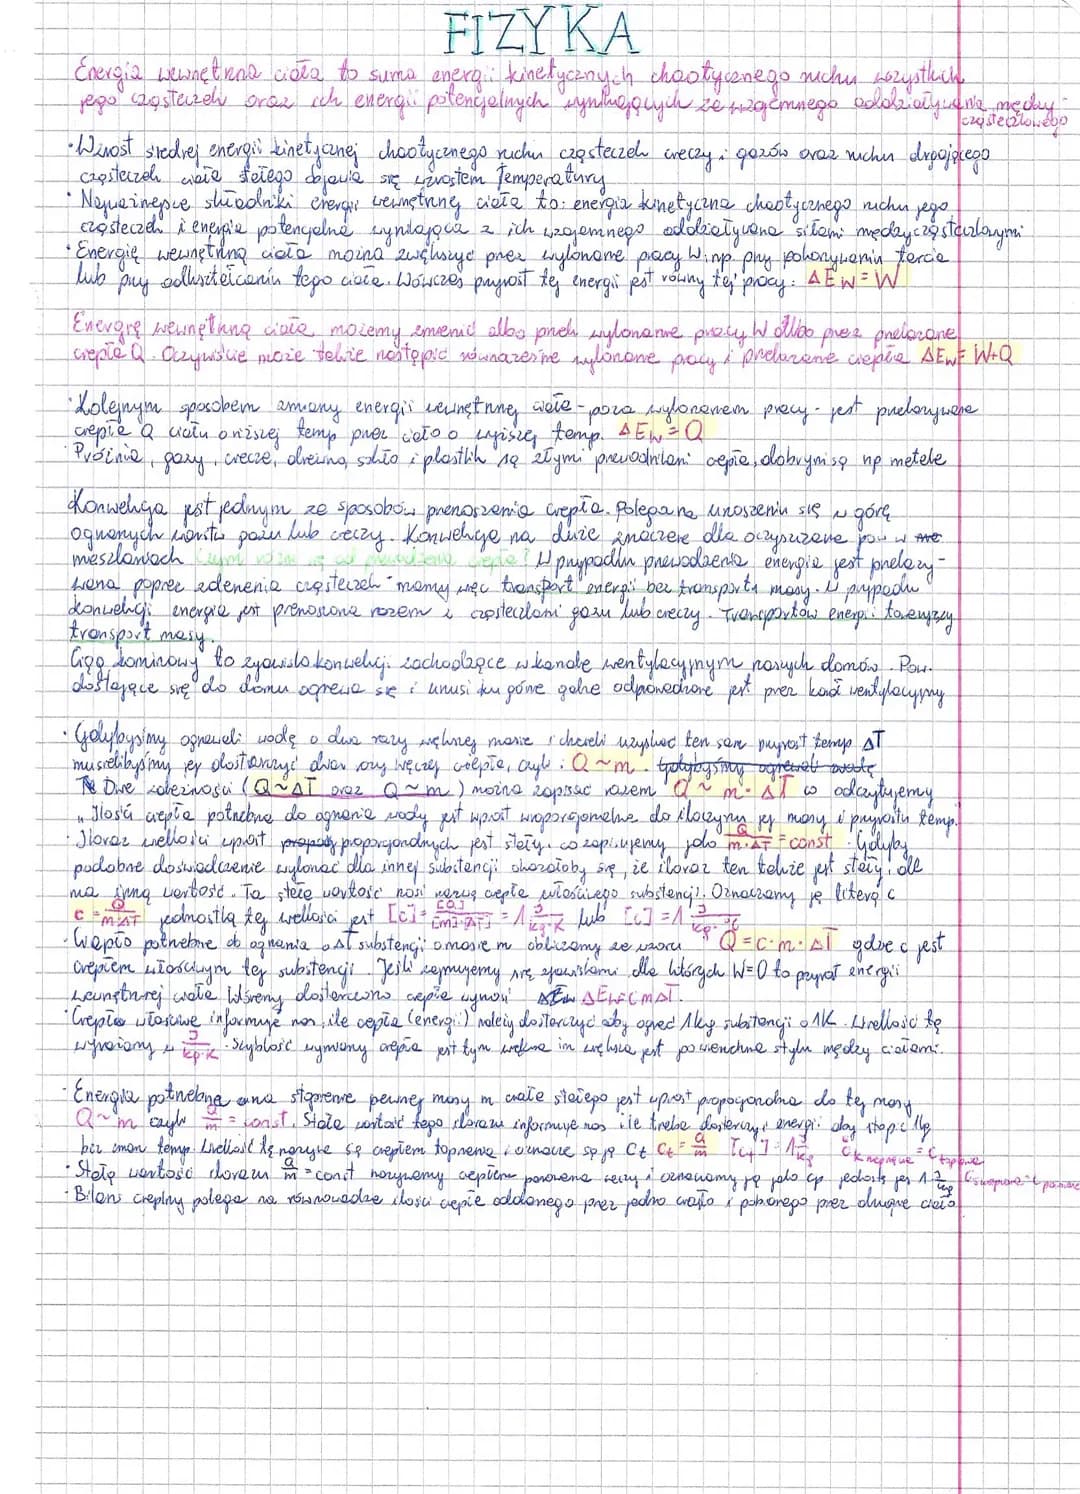 FIZYKA
Energia wewnętrzna ciała to suma energii kinetycznych chaotycznego ruchu wszystkich
jego cząsteczek oraz ich energii potencjalnych wynikających ze wzajemnego oddziaływania między-
cząsteczkowego
• Wzrost średniej energii kinetycznej chaotycznego ruchu cząsteczek cieczy i gazów oraz ruchu drgającego
cząsteczek ciała stałego objawia się wzrostem Temperatury
• Najważniejsze składniki energii wewnętrznej ciała to: energia kinetyczna chaotycznego ruchu jego
cząsteczek i energia potencjalna wynikająca z ich wzajemnego oddziaływania siłami międzycząsteczkowymi
• Energię wewnętrzną ciała można zwiększyć przez wykonanie pracy W, np. przy pokonywaniu tarcia
lub przy odkształcaniu tego ciała. Wówczas przyrost tej energii jest równy tej pracy: ΔEw = W
Energię wewnętrzną ciała możemy zmienić albo przez wykonanie pracy W albo przez przekazanie
ciepła Q. Oczywiście może także nastąpić równocześnie wykonane pracy i przekazanie ciepła ΔEw = W+Q
• Kolejnym sposobem zmiany energii wewnętrznej ciała - poza wykonaniem pracy - jest przekazywanie
ciepła Q ciału o niższej temp przez ciało o wyższej temp. ΔEw = Q
• Próżnia, gazy, ciecze, drewno, szkło i plastik są złymi przewodnikami ciepła, dobrymi są np metale
Konwekcja jest jednym ze sposobów przenoszenia ciepła. Polega na unoszeniu się w górę
ogrzanych gazu lub cieczy. Konwekcja na duże znaczenie dla oczyszczania pow w
mieszkaniach Czym różni się od przewodzenia ciepła? W przypadku przewodzenia energia jest przekazy-
wana poprzez zderzenia cząsteczek - mamy więc transport energii bez transportu masy. W przypadku
konwekcji energia jest przenoszona razem z cząsteczkami gazu lub cieczy. Transportowi energii towarzyszy
transport masy.
Ciąg kominowy to zjawisko konwekcji zachodzące w kanale wentylacyjnym naszych domów. Pow.
dostające się do domu ogrzewa się i unosi ku górze gdzie odprowadzone jest przez kanał wentylacyjny
• Gdybyśmy ogrzewali wodę o dwa razy większej masie i chcieli uzyskać ten sam przyrost temp ΔT
musielibyśmy jej dostarczyć dwa razy więcej ciepła, czyli: Q ~ m. Gdybyśmy ogrzewali wodę
Dwie zależności (Q ~ ΔT oraz Q ~ m) można zapisać razem Q ~ m · ΔT co odczytujemy
„Ilość ciepła potrzebna do ogrzania wody jest wprost wroporcjonalna do iloczynu jej masy i przyrostu temp."
• Iloraz wielkości wprost proporcjonalnych jest stały, co zapisujemy jako Q/m·ΔT = const. Gdyby
podobne doświadczenie wykonać dla innej substancji okazałoby się, że iloraz ten także jest stały, ale
ma inną wartość. Ta stała wartość nosi nazwę ciepła właściwego substancji. Oznaczamy ją literą c
c = Q/m·ΔT jednostką tej wielkości jest [c] = [Q]/[m]·[ΔT] = 1 J/kg·K lub [c] = 1 J/kg·°C
• Ciepło potrzebne do ogrzania o ΔT substancji o masie m obliczamy ze wzoru Q = c·m·ΔT gdzie c jest
ciepłem właściwym tej substancji. Jeśli zajmujemy się zjawiskami dla których W=0 to przyrost energii
wewnętrznej ciała któremu dostarczono ciepła wynosi ΔEw = cmΔT.
• Ciepło właściwe informuje nas, ile ciepła (energii) należy dostarczyć aby ogrzać 1kg substancji o 1K. Wielkość tę
wyrażamy w J/kg·K. Szybkość wymiany ciepła jest tym większa im większa jest powierzchnia styku między ciałami.
• Energia potrzebna na stopienie pewnej masy m ciała stałego jest wprost proporcjonalna do tej masy
Q ~ m czyli Q/m = const. Stała wartość tego ilorazu informuje nas ile trzeba dostarczyć energii aby stopić 1kg
bez zmian temp. Wielkość tę nazywa się ciepłem topnienia i oznacza się ją Ct Ct = Q/m [Ct] = 1 J/kg C krzepnięcia = C topnienia
• Stałą wartość ilorazu Q/m = const nazywamy ciepłem parowania cieczy i oznaczamy ją jako cp jednostka jej 1 J/kg C skraplania = C parowania
• Bilans cieplny polega na równowadze ilości ciepła oddanego przez jedno ciało i pobranego przez drugie ciało